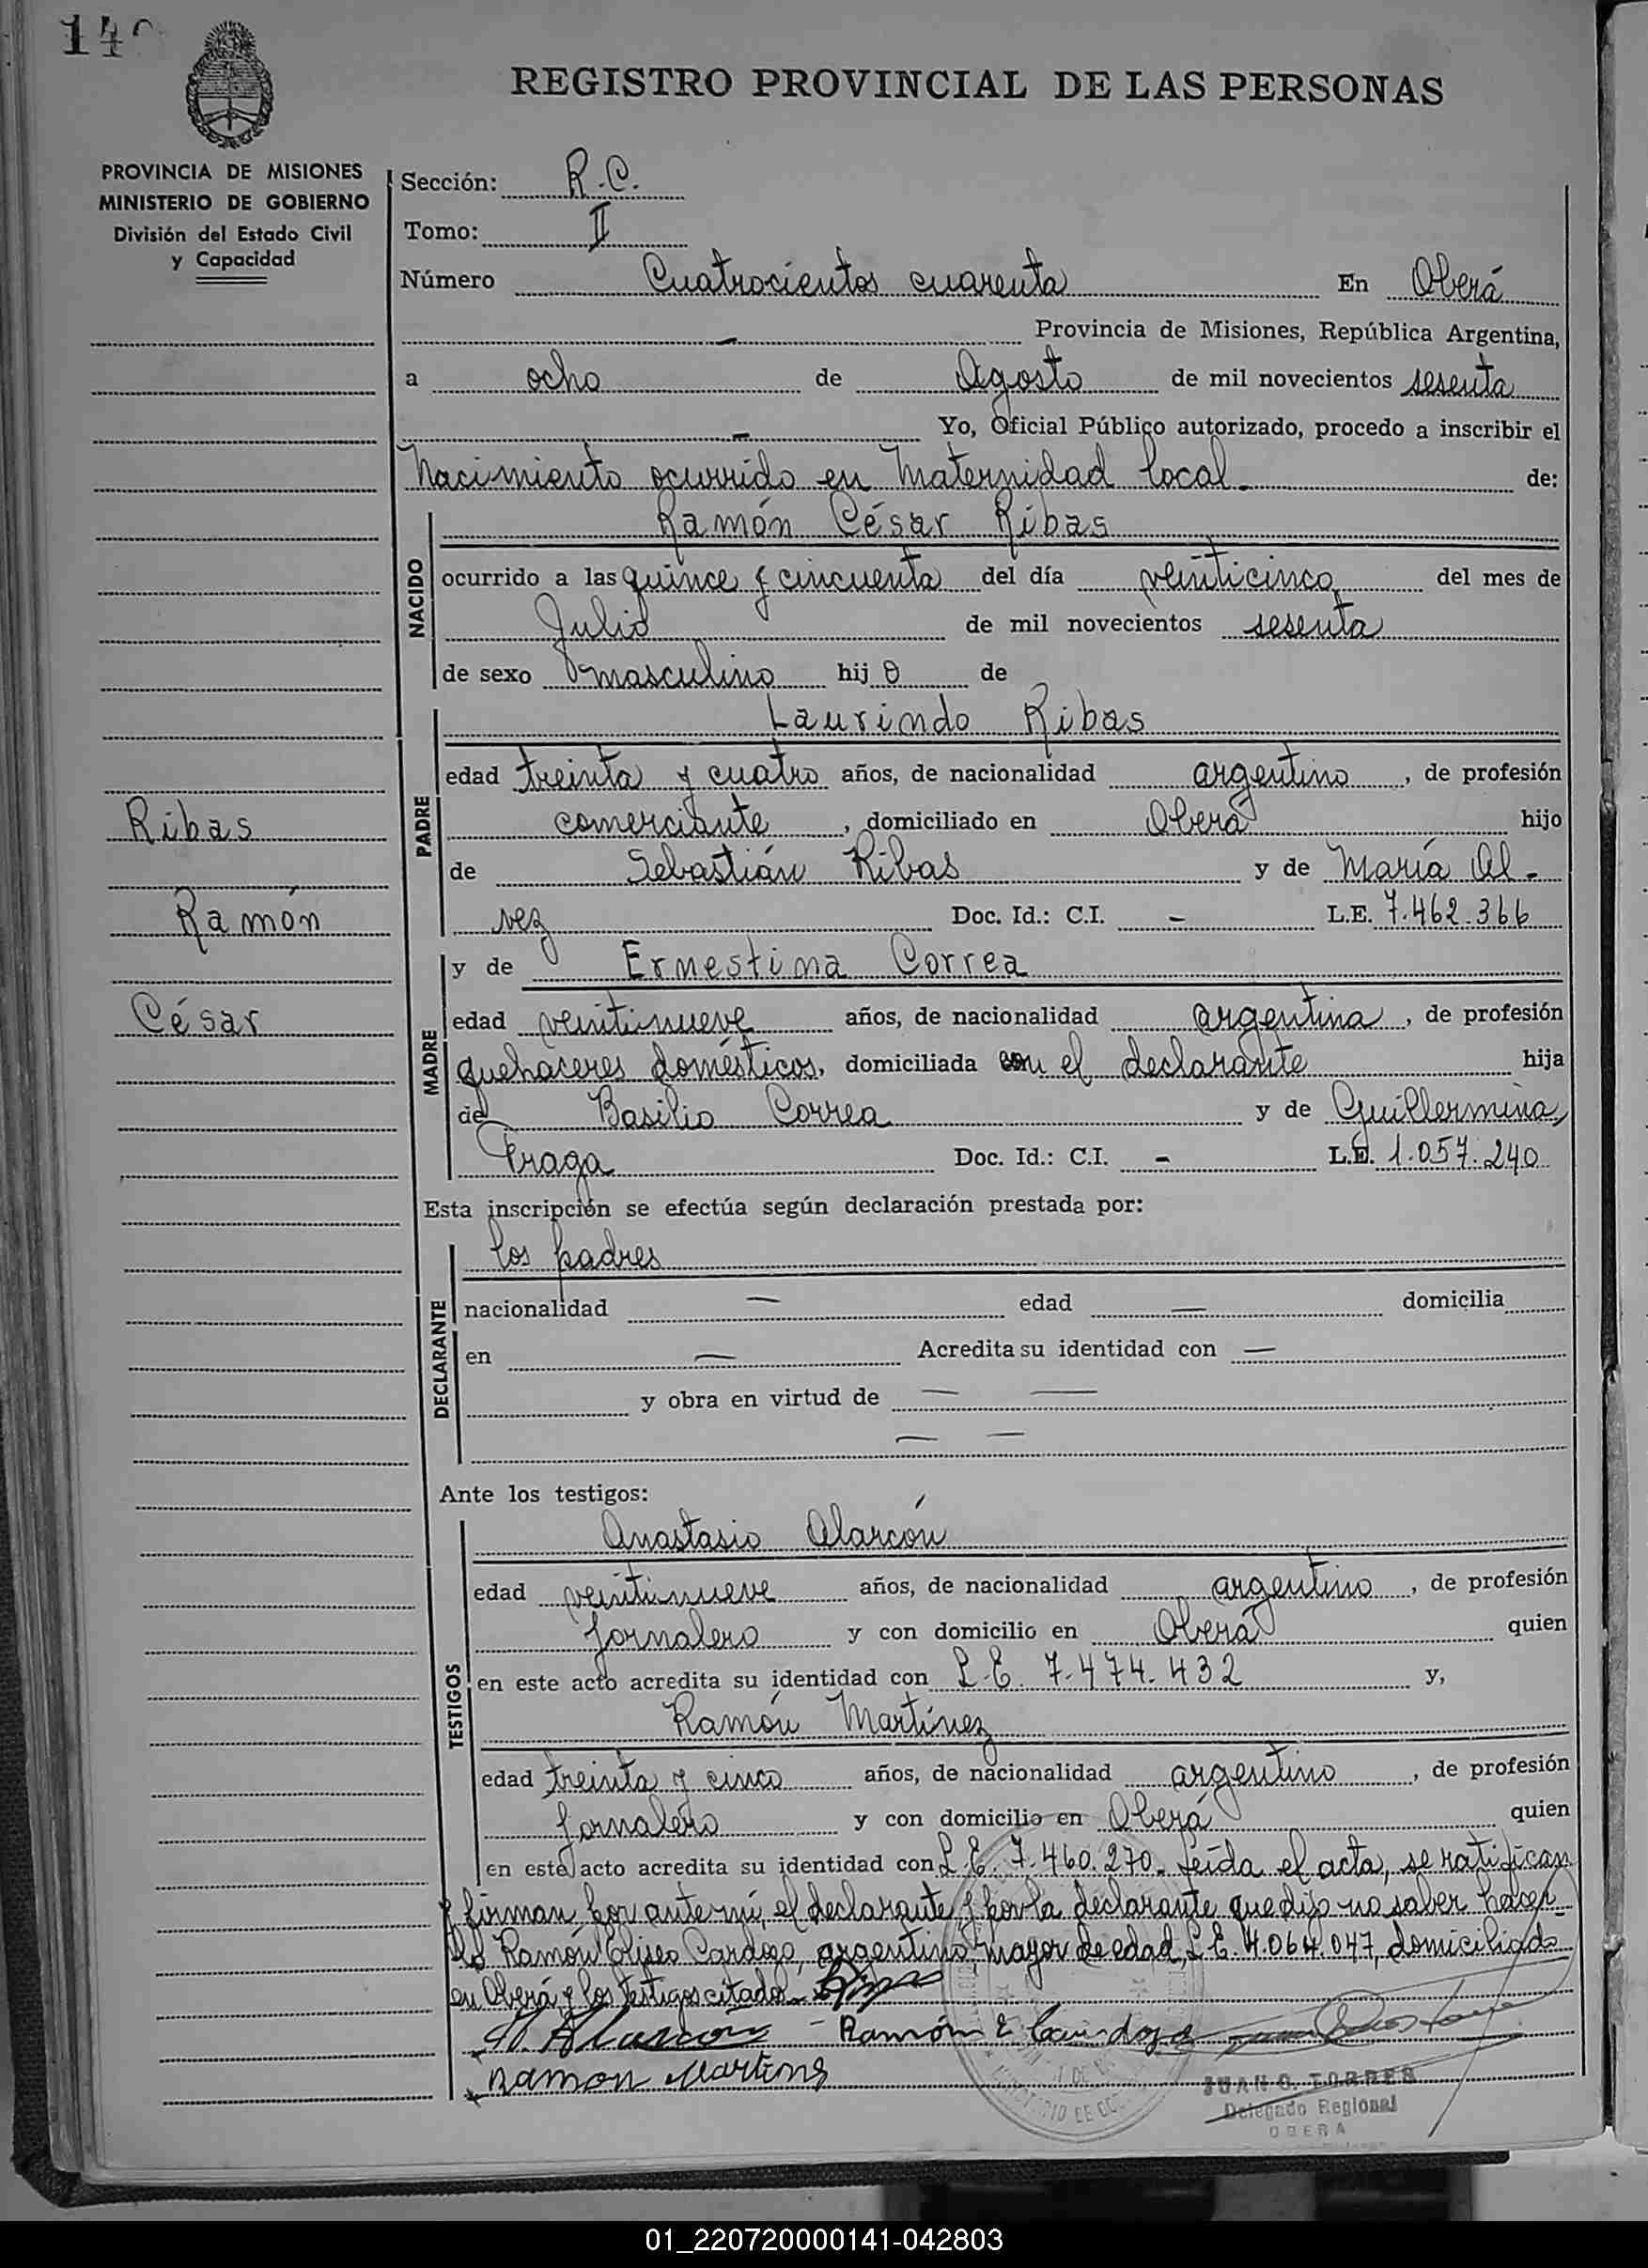 REGISTRO PROVINCIAL DE LAS PERSONAS
PROVINCIA DE MISIONES
MINISTERIO DE GOBIERNO
División del Estado Civil
y Capacidad
Ribas
Ramón
César
Sección: R.C.
Tomo: II
Número Cuatrocientos cuarenta En Oberá
- Provincia de Misiones, República Argentina,
a ocho de Agosto de mil novecientos sesenta
- Yo, Oficial Público autorizado, procedo a inscribir el
Nacimiento ocurrido en Maternidad local - de:
NACIDO
Ramón César Ribas
ocurrido a las quince y cincuenta del día veinticinco del mes de
Julio de mil novecientos sesenta
de sexo masculino hij o de
PADRE
Laurindo Ribas
edad treinta y cuatro años, de nacionalidad argentino, de profesión
comerciante, domiciliado en Oberá hijo
de Sebastián Ribas y de María Al-
vez Doc. Id.: C.I. - L.E. 7.462.366
MADRE
y de Ernestina Correa
edad veintinueve años, de nacionalidad argentina, de profesión
quehaceres domésticos, domiciliada con el declarante hija
de Basilio Correa y de Guillermina
Fraga Doc. Id.: C.I. - L.E. 1.057.240
Esta inscripción se efectúa según declaración prestada por:
DECLARANTE
los padres
nacionalidad — edad — domicilia
en — Acredita su identidad con —
y obra en virtud de — —
— —
Ante los testigos:
TESTIGOS
Anastasio Alarcón
edad veintinueve años, de nacionalidad argentino, de profesión
Jornalero y con domicilio en Oberá quien
en este acto acredita su identidad con L.E. 7.474.432 y,
Ramón Martínez
edad treinta y cinco años, de nacionalidad argentino, de profesión
Jornalero y con domicilio en Oberá quien
en este acto acredita su identidad con L.E. 7.460.270. Leída el acta, se ratifican
y firman por ante mí, el declarante y por la declarante que dijo no saber hacer
lo Ramón Eliseo Cardozo, argentino, mayor de edad, L.E. 4.064.047, domiciliado
en Oberá y los testigos citados.
A. Alarcon - Ramón E Cardozo
Ramon Martines
JUAN C. TORRES
Delegado Regional
OBERA
01_220720000141-042803